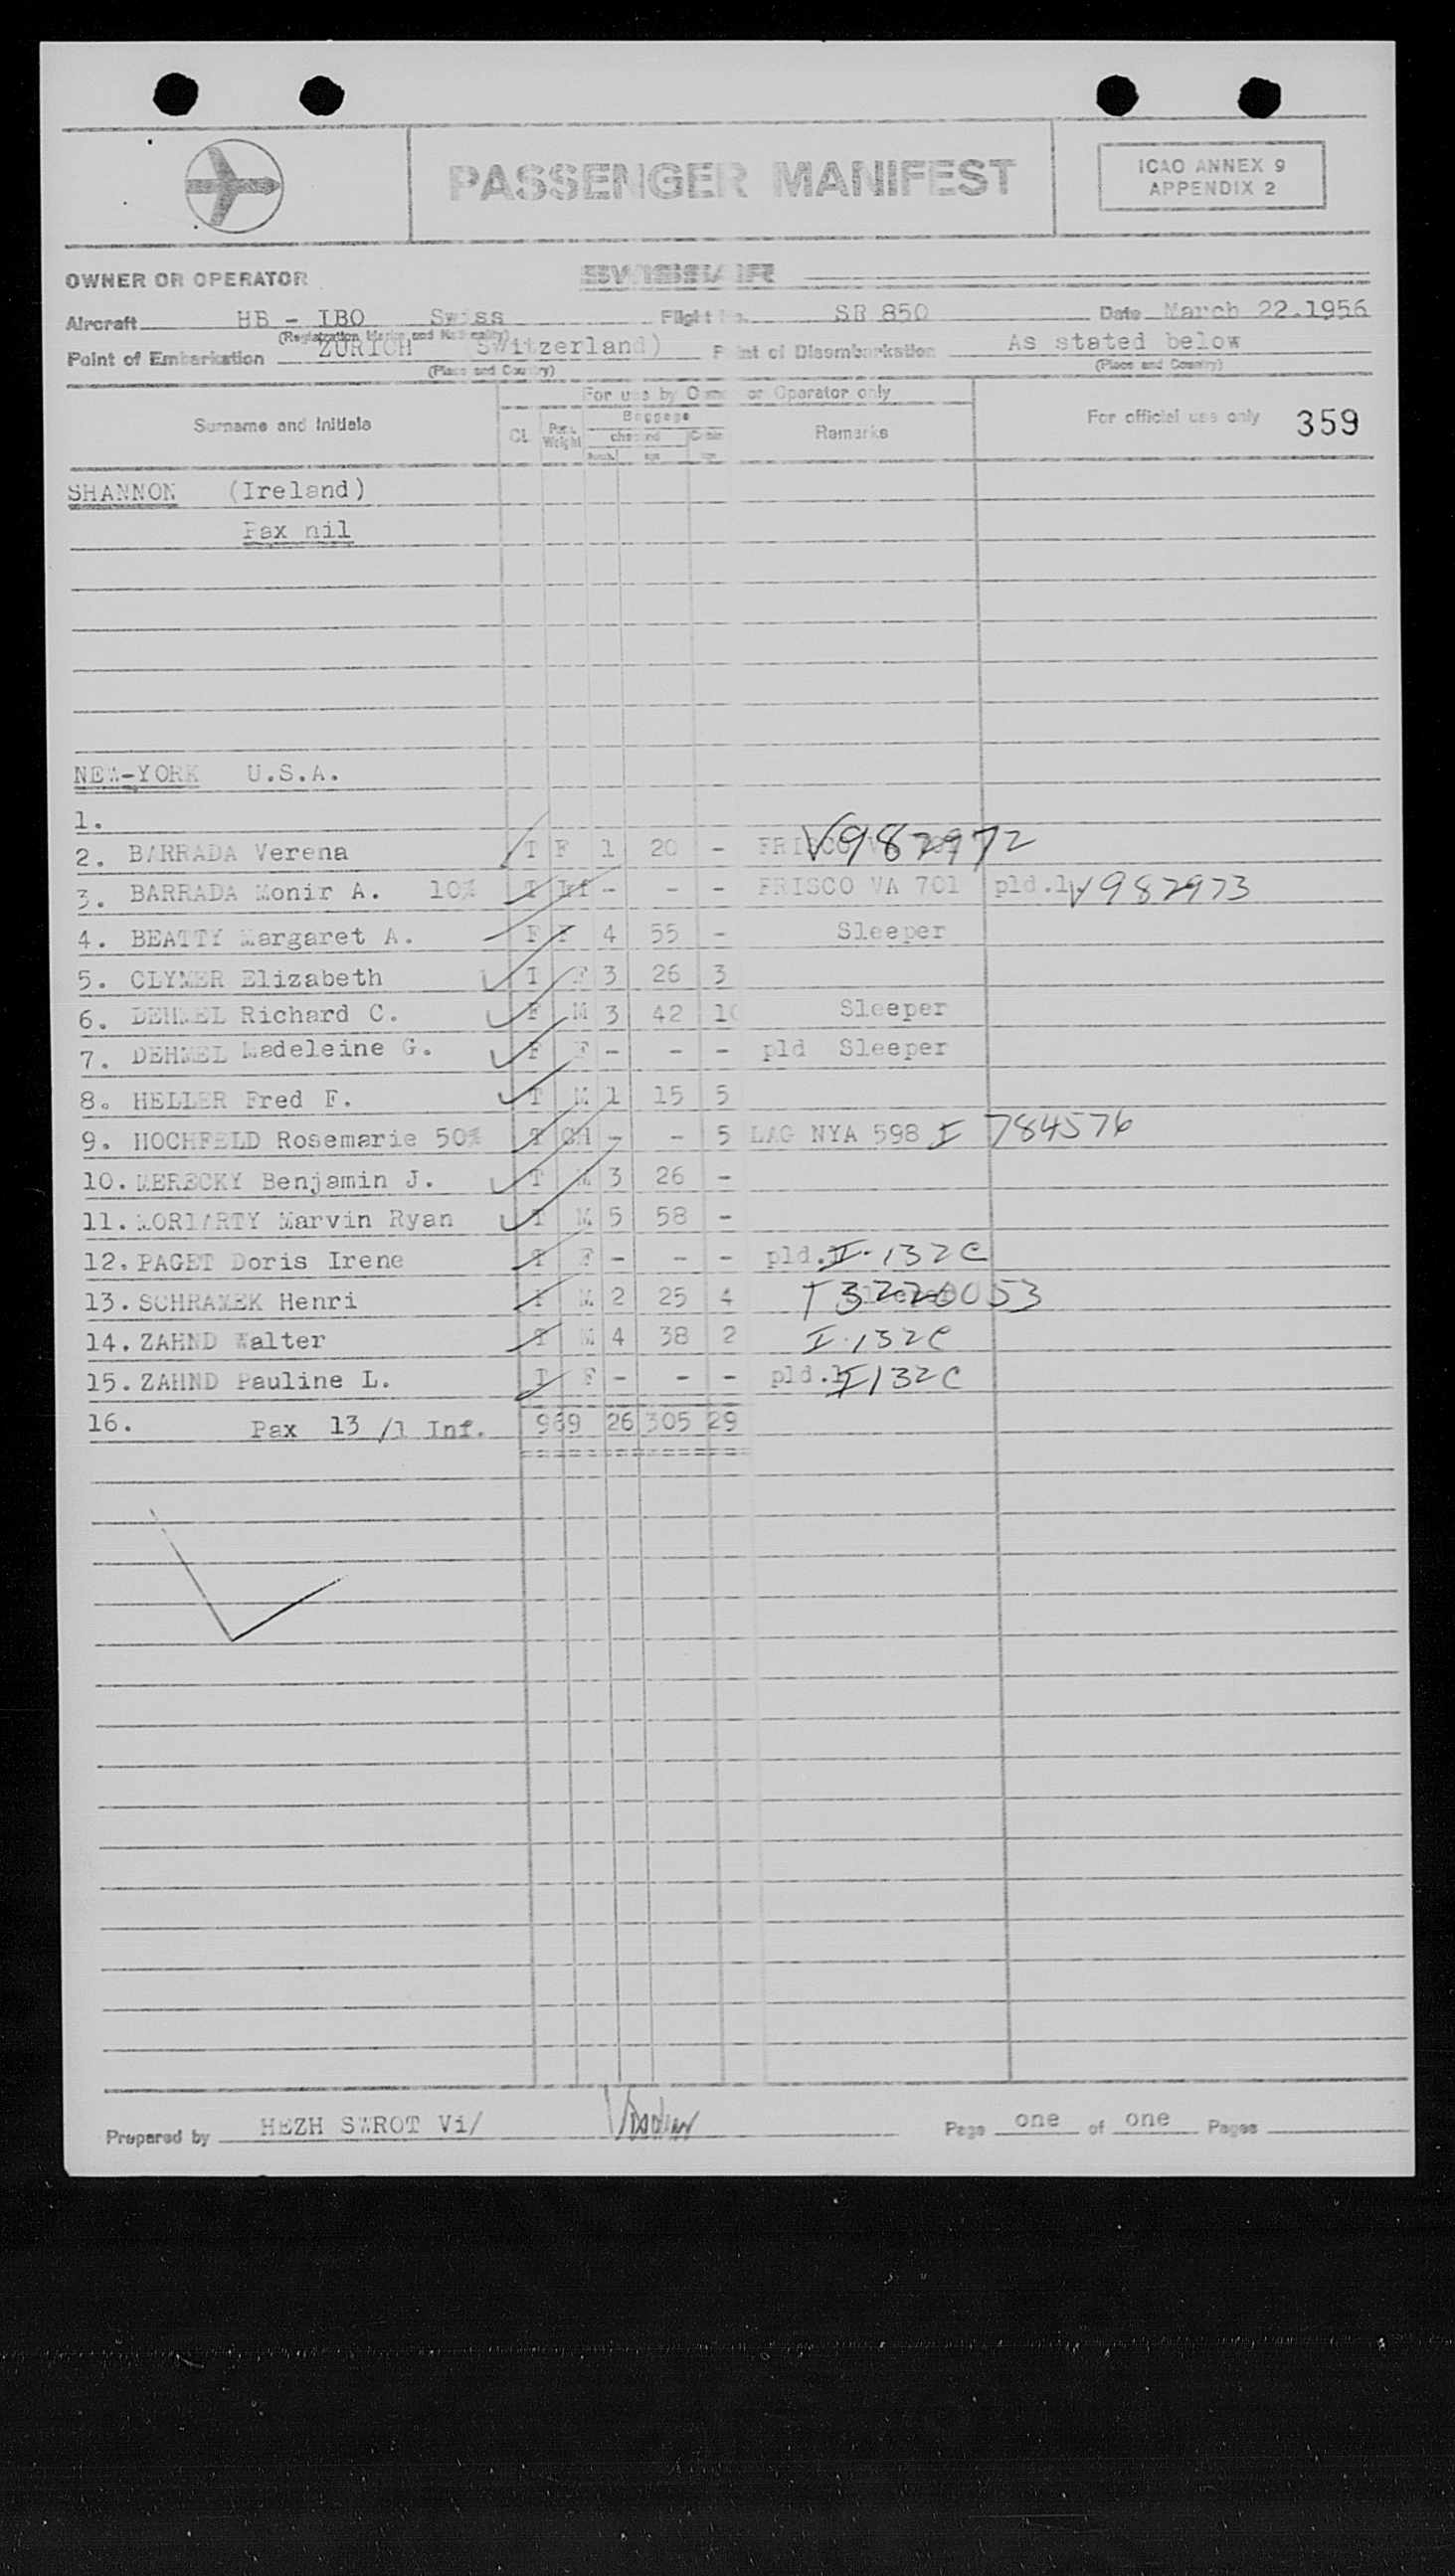 PASSENGER MANIFEST
ICAO ANNEX 9
APPENDIX 2
OWNER OR OPERATOR SWISSAIR
Aircraft HB - IBO Swiss Flight No. SR 850 Date March 22.1956
(Registration Marks and Nationality)
Point of Embarkation ZÜRICH (Switzerland) Point of Disembarkation As stated below
(Place and Country) (Place and Country)
For use by Owner or Operator only
Surname and Initials CL Pass. Weight Baggage checked Cabin Remarks For official use only 359
SHANNON (Ireland)
Pax nil
NEW-YORK U.S.A.
1.
2. BARRADA Verena T F 1 20 - FRISCO V982972
3. BARRADA Monir A. 10% T Inf - - - FRISCO VA 701 pld.1 V982973
4. BEATTY Margaret A. F F 4 55 - Sleeper
5. CLYMER Elizabeth T F 3 26 3
6. DEHMEL Richard C. F M 3 42 10 Sleeper
7. DEHMEL Madeleine G. F F - - - pld Sleeper
8. HELLER Fred F. T M 1 15 5
9. HOCHFELD Rosemarie 50% T CH - - 5 LAG NYA 598 I 784576
10. MERECKY Benjamin J. T M 3 26 -
11. MORIARTY Marvin Ryan T M 5 58 -
12. PAGET Doris Irene T F - - - pld. I-132C
13. SCHRAMEK Henri M 2 25 4 T3220053
14. ZAHND Walter T M 4 38 2 I-132C
15. ZAHND Pauline L. T F - - - pld.1 I132C
16. Pax 13 /1 Inf. 969 26 305 29
Prepared by HEZH SWROT Vi/ Page one of one Pages